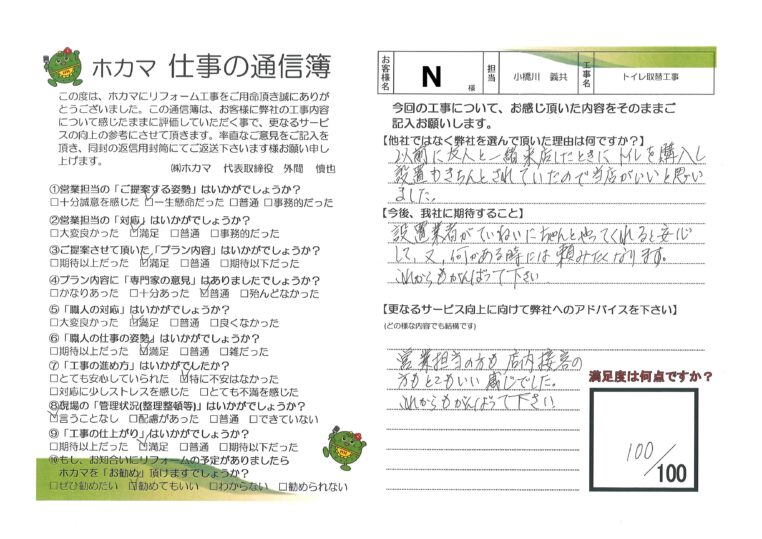 ホカマ 仕事の通信簿
この度は、ホカマにリフォーム工事をご用命頂き誠にありが
とうございました。この通信簿は、お客様に弊社の工事内容
について感じたままに評価していただく事で、更なるサービ
スの向上の参考にさせて頂きます。率直なご意見をご記入を
頂き、同封の返信用封筒にてご返送下さいます様お願い申し
上げます。
㈱ホカマ 代表取締役 外間 慎也
①営業担当の「ご提案する姿勢」はいかがでしょうか?
□十分誠意を感じた ☑一生懸命だった □普通 □事務的だった
②営業担当の「対応」はいかがでしょうか?
□大変良かった ☑満足 □普通 □事務的だった
③ご提案させて頂いた「プラン内容」はいかがでしょうか?
□期待以上だった ☑満足 □普通 □期待以下だった
④プラン内容に「専門家の意見」はありましたでしょうか?
□かなりあった □十分あった ☑普通 □殆んどなかった
⑤「職人の対応」はいかがでしょうか?
□大変良かった ☑満足 □普通 □良くなかった
⑥「職人の仕事の姿勢」はいかがでしょうか?
□期待以上だった ☑満足 □普通 □雑だった
⑦「工事の進め方」はいかがでしたでしょうか?
□とても安心していられた ☑特に不安はなかった
□対応に少しストレスを感じた □とても不満を感じた
⑧現場の「管理状況(整理整頓等)」はいかがでしょうか?
☑言うことなし □配慮があった □普通 □できていない
⑨「工事の仕上がり」はいかがでしょうか?
□期待以上だった ☑満足 □普通 □期待以下だった
⑩もし、お知合いにリフォームの予定がありましたら
ホカマを「お勧め」頂けますでしょうか?
□ぜひ勧めたい ☑勧めてもいい □わからない □勧められない
お客様名 N 様 担当 小橋川 義共 工事名 トイレ取替工事
今回の工事について、お感じ頂いた内容をそのままご
記入お願いします。
【他社ではなく弊社を選んで頂いた理由は何ですか?】
以前に友人と一緒来店したときにトイレを購入し
設置もきちんとされていたので当店がいいと思い
ました。
【今後、我社に期待すること】
設置業者がていねいにちゃんとやってくれると安心
して、又、何かある時には頼みたくなります。
これからもがんばって下さい
【更なるサービス向上に向けて弊社へのアドバイスを下さい】
(どの様な内容でも結構です)
営業担当の方も店内接客の
方もとてもいい感じでした。
これからもがんばって下さい
満足度は何点ですか?
100/100